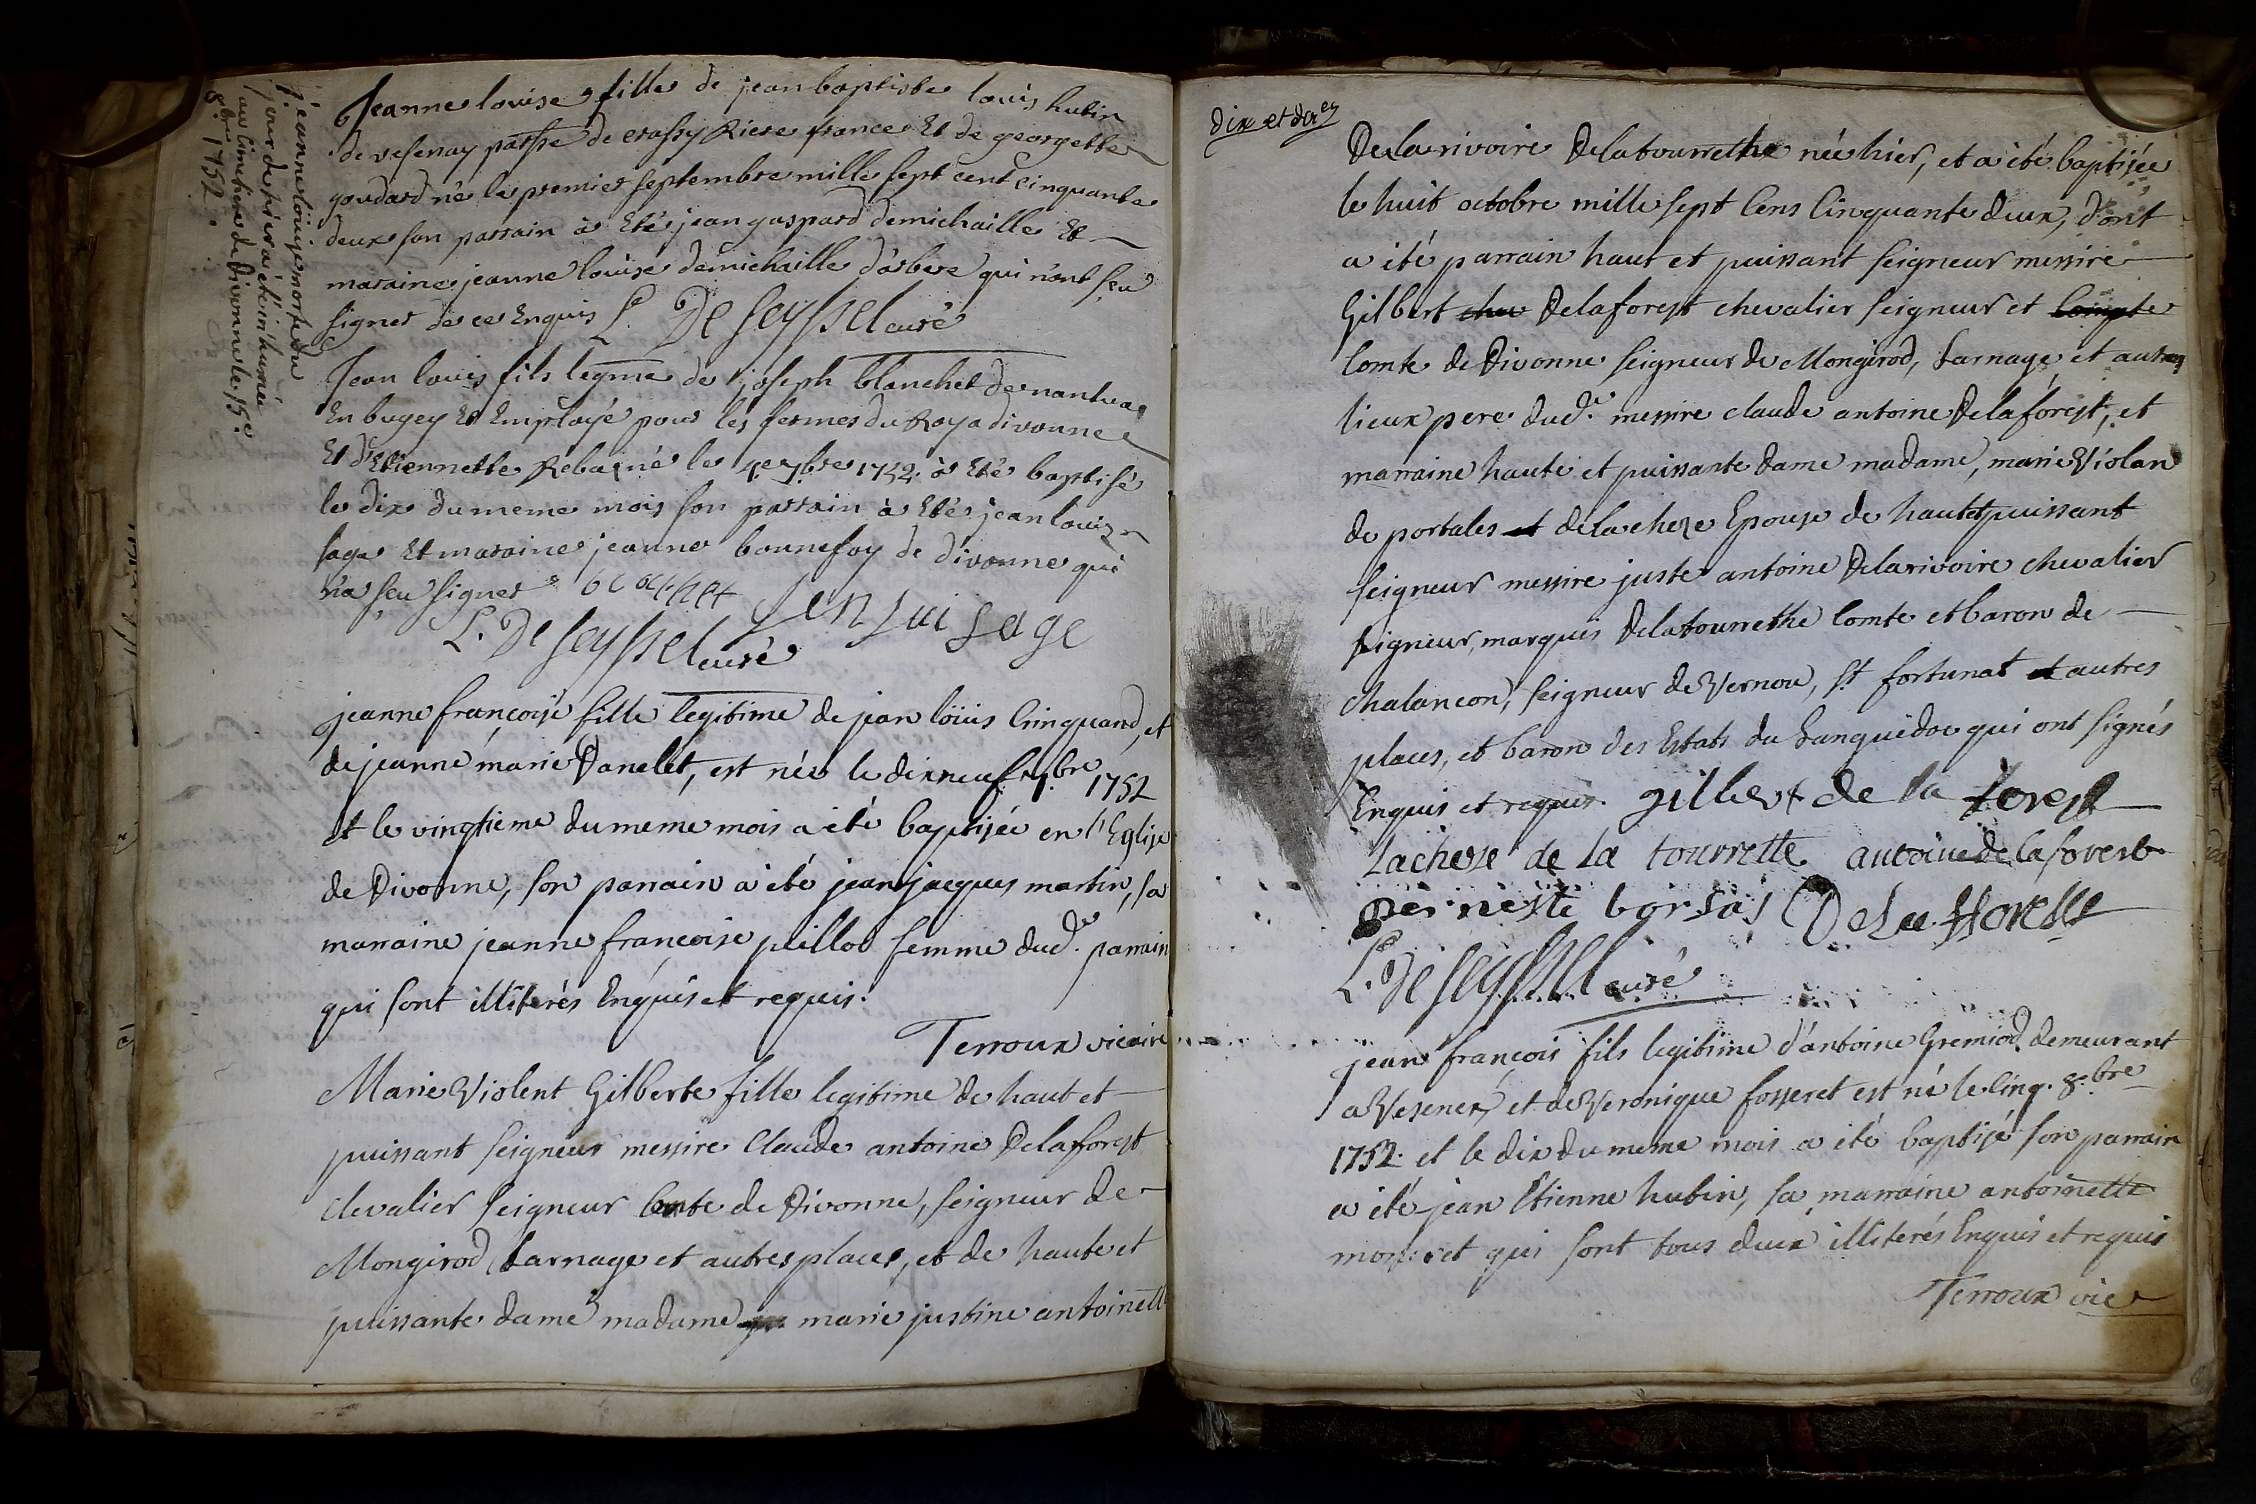 jeanne loüise morte du
jour de hier a été inhumée
au Cimetiere de Divonne le 15e
8.bre 1752.
Jeanne louise fille de jean baptiste louis hutin
de vesenay passe de crassy Riere france Et de georgette
goudard né le premier septembre mille sept cent cinquante
deux son parrain à Eté jean gaspard demichaille Et
maraine jeanne louise demichaille d'arbere qui n'ont seu
signer de ce Enquis L. De seyssel curé
Jean louis fils legme de joseph blanchet de nantua
En bugey Et Employé pour les fermes du Roy a divonne
Et d'Etiennette Reba né le 4e 7bre 1752 à Eté baptisé
le dix du meme mois son parrain à Eté jean louis
sage Et maraine jeanne bonnefoy de divonne qui
n'a seu signer
Jen lui sage
L. De seyssel curé
jeanne françoise fille legitime de jean loüis Cinquand, et
de jeanne marie Danelet, est née le dixneuf 7.bre 1752
et le vingtieme du meme mois a été baptisée en l'Eglise
de Divonne, son parrain a été jean jacques martin, sa
marraine jeanne françoise pillod femme dud. parrain
qui sont illiterés Enquis et requis.
Terroux vicaire
Marie Violent Gilberte fille legitime de haut et
puissant seigneur messire Claude antoine Delafforest
chevalier seigneur Comte de Divonne, seigneur de
Mongirod, Larnage et autres places, et de haute et
puissante dame madame marie justine antoinette
dix et dern
Delarivoire Delatourrethe née hier, et a été baptisée
le huit octobre mille sept Cens Cinquante deux, dont
a été parrain haut et puissant seigneur messire
Gilbert che Delaforest chevalier seigneur et Compte
Comte de Divonne seigneur de Mongirod, Larnage et autres
lieux pere dud. messire claude antoine Delaforest, et
marraine haute et puissante dame madame, marie Violan
de portales et delacheze Epouse de haut et puissant
seigneur messire juste antoine Delarivoire chevalier
seigneur, marquis Delatourrethe Comte et baron de
chalancon, seigneur de Vernou, st fortunat et autres
places, et baron des Estats du Languedoc qui ont signés
Enquis et requis. gilbert de la forest
Lacheze de la tourrette antoine de la forest
pernêste borsas De La fforest
L. De seyssel curé
jean françois fils legitime d'antoine Gremiod demeurant
a Vesenex, et de Veronique fosseret est né le Cinq. 8.bre
1752. et le dix du meme mois a été baptisé son parrain
a été jean Etienne hutin, sa marraine antoinette
qui sont tous deux illiterés Enquis et requis
Terroux vic